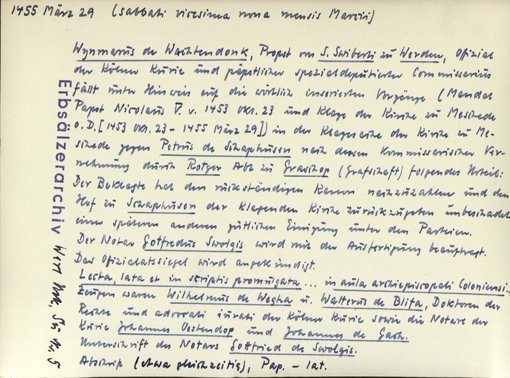 1455 März 29 (sabbati vicesima nona mensis Marcii)
Wynmarus de Wachtendonk, Propst von S. Swiberti zu Werden, Offizial
der Kölner Kurie und päpstlicher spezialdeputierter Commissarius
fällt unter Hinweis auf die wörtlich inserierten Vorgänge (Mandat
Papst Nicolaus V. v. 1453 Okt. 23 und Klage der Kirche zu Meschede
o.D. [1453 Okt. 23 - 1455 März 29]) in der Klagesache der Kirche zu Me-
schede gegen Petrus de Scaphusen nach dessen kommissarischer Ver-
nehmung durch Rotger Abt zu Graschop (Grafschaft) folgendes Urteil:
Der Beklagte hat den rückständigen Kanon nachzuzahlen und den
Hof zu Scaphusen der klagenden Kirche zurückzugeben unbeschadet
einer späteren anderen gütlichen Einigung unter den Parteien.
Der Notar Gotfredus Swolgis wird mit der Ausfertigung beauftragt.
Das Offizialatssiegel wird angekündigt.
Lecta, lata et in scriptis promulgata ... in aula archiepiscopali Coloniensi.
Zeugen waren Wilhelmus de Wegha u. Walterus de Blifa, Doktoren der
Rechte und advocati iurati der Kölner Kurie sowie die Notare der
Kurie Johannes Oestendorp und Johannes de Gach.
Unterschrift des Notars Gottfried de Swolgis.
Abschrift (etwa gleichzeitig), Pap. - lat.
Erbsälzerarchiv Werl
Nr. 5